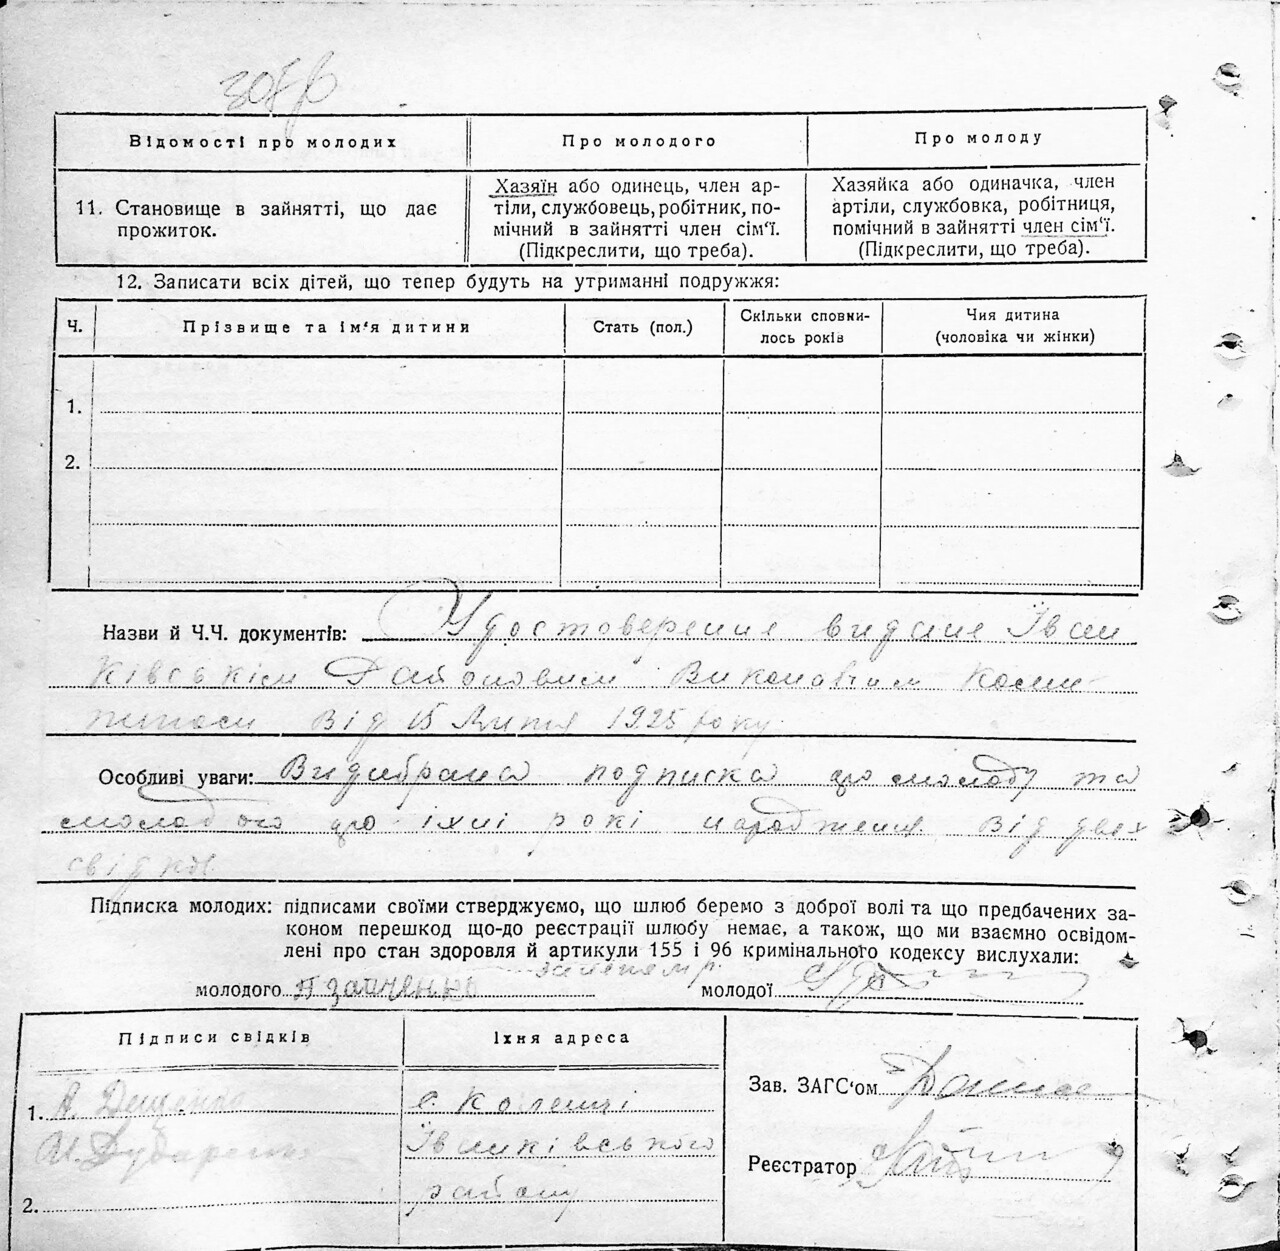 Відомості про молодих
Про молодого
Про молоду
11. Становище в зайнятті, що дає
прожиток.
Хазяїн або одинець, член ар-
тіли, службовець, робітник, по-
мічний в зайнятті член сім'ї.
(Підкреслити, що треба).
Хазяйка або одиначка, член
артіли, службовка, робітниця,
помічний в зайнятті член сім'ї.
(Підкреслити, що треба).
12. Записати всіх дітей, що тепер будуть на утриманні подружжя:
Ч.
Прізвище та ім'я дитини
Стать (пол.)
Скільки сповни-
лось років
Чия дитина
(чоловіка чи жінки)
1.
2.
Назви й Ч.Ч. документів: Удостоверення видане Іван
ківським Районовим Виконавчим Коми
від 15 Липня 1925 року
Особливі уваги: Видибрана подписка що молоду та
молодого що іхні рокі народження від двех
свідків
Підписка молодих: підписами своїми стверджуємо, що шлюб беремо з доброї волі та що предбачених за-
коном перешкод що-до реєстрації шлюбу немає, а також, що ми взаємно освідом-
лені про стан здоровля й артикули 155 і 96 кримінального кодексу вислухали:
молодого П Зайченко
молодої
Підписи свідків
Їхня адреса
1. А. Деценко
с. Коленці
Іванківського
району
2.
Зав. ЗАГС'ом
Реєстратор